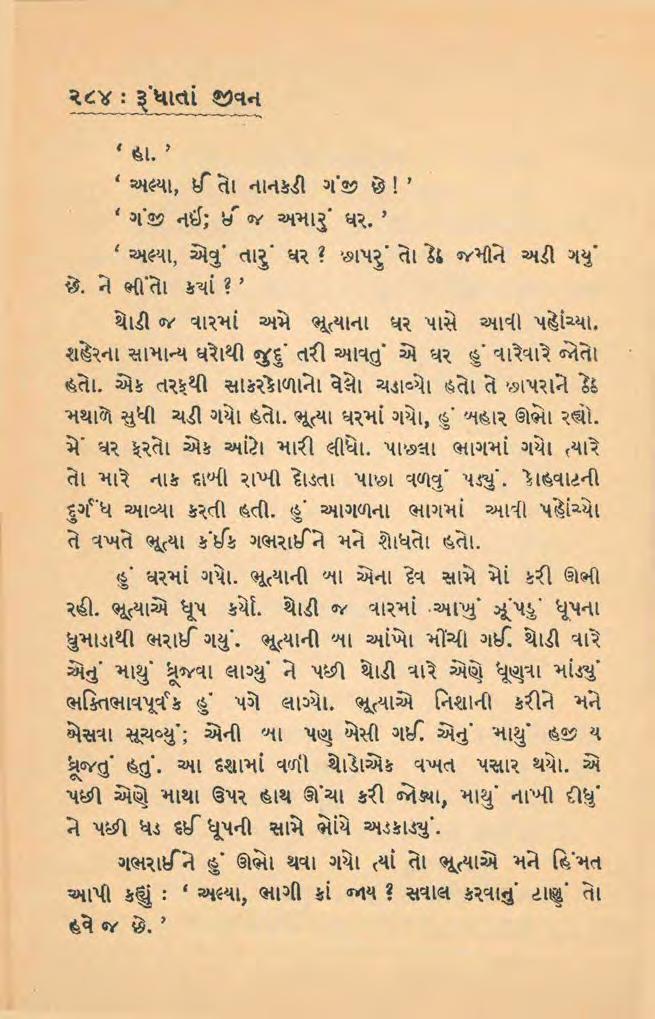 ૨૮૪ : રૂંધાતાં જીવન
‘ હા. ’
‘ અલ્યા, ઈ તો નાનકડી ગંજી છે ! ’
‘ ગંજી નઈ; ઈ જ અમારું ઘર. ’
‘ અલ્યા, એવું તારું ઘર ? છાપરું તો ઠેઠ જમીને અડી ગયું
છે. ને ભીંતો ક્યાં ? ’
થોડી જ વારમાં અમે ભૂત્યાના ઘર પાસે આવી પહોંચ્યા.
શહેરના સામાન્ય ઘરોથી જુદું તરી આવતું એ ઘર હું વારેવારે જોતો
હતો. એક તરફથી સાકરકોળાનો વેલો ચડાવ્યો હતો તે છાપરાને ઠેઠ
મથાળે સુધી ચડી ગયો હતો. ભૂત્યા ઘરમાં ગયો, હું બહાર ઊભો રહ્યો.
મેં ઘર ફરતો એક આંટો મારી લીધો. પાછલા ભાગમાં ગયો ત્યારે
તો મારે નાક દાબી રાખી દોડતા પાછા વળવું પડ્યું. કોહવાટની
દુર્ગંધ આવ્યા કરતી હતી. હું આગળના ભાગમાં આવી પહોંચ્યો
તે વખતે ભૂત્યા કંઈક ગભરાઈને મને શોધતો હતો.
હું ઘરમાં ગયો. ભૂત્યાની બા એના દેવ સામે મોં કરી ઊભી
રહી. ભૂત્યાએ ધૂપ કર્યો. થોડી જ વારમાં આખું ઝૂંપડું ધૂપના
ધુમાડાથી ભરાઈ ગયું. ભૂત્યાની બા આંખો મીંચી ગઈ. થોડી વારે
એનું માથું ધ્રૂજવા લાગ્યું ને પછી થોડી વારે એણે ધૂણવા માંડ્યું
ભક્તિભાવપૂર્વક હું પગે લાગ્યો. ભૂત્યાએ નિશાની કરીને મને
બેસવા સૂચવ્યું; એની બા પણ બેસી ગઈ. એનું માથું હજી ય
ધ્રૂજતું હતું. આ દશામાં વળી થોડોએક વખત પસાર થયો. એ
પછી એણે માથા ઉપર હાથ ઊંચા કરી જોડ્યા, માથું નાખી દીધું
ને પછી ધડ દઈ ધૂપની સામે ભોંયે અડકાડ્યું.
ગભરાઈને હું ઊભો થવા ગયો ત્યાં તો ભૂત્યાએ મને હિંમત
આપી કહ્યું : ‘ અલ્યા, ભાગી કાં જાય ? સવાલ કરવાનું ટાણું તો
હવે જ છે. ’